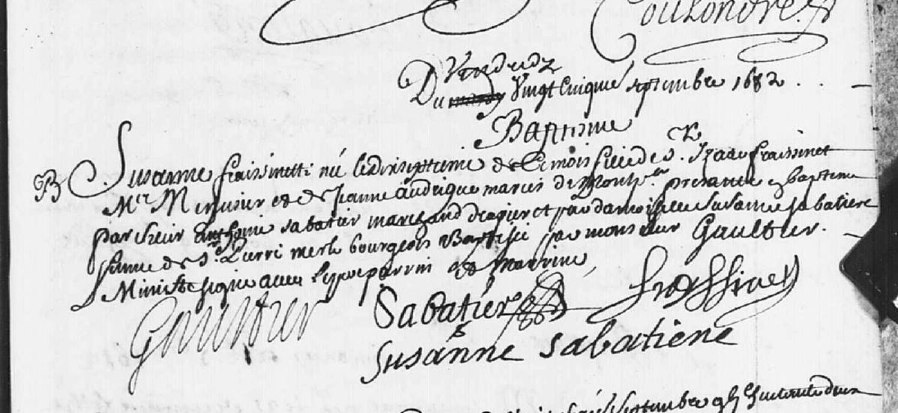 Coulondres
Vendredy
Du mardy Vingt Cinquie septembre 1682
Baptesme
B Susanne fraissinette née le dixseptieme de ce mois fille de Sr. Izaac fraissinet
Mre Menusier et de Jeanne audegue mariés de Montpr presantée en baptesme
par sieur anthoine sabatier marchand drogier et par damoiselle susanne sabatiere
fame de Sr. Pierre merle bourgeois Baptisée par monsieur Gaultier
Ministre signé avec le pere parrin et marrine
Gaultier Sabatier fraissinet
Susanne sabatiene
septembre